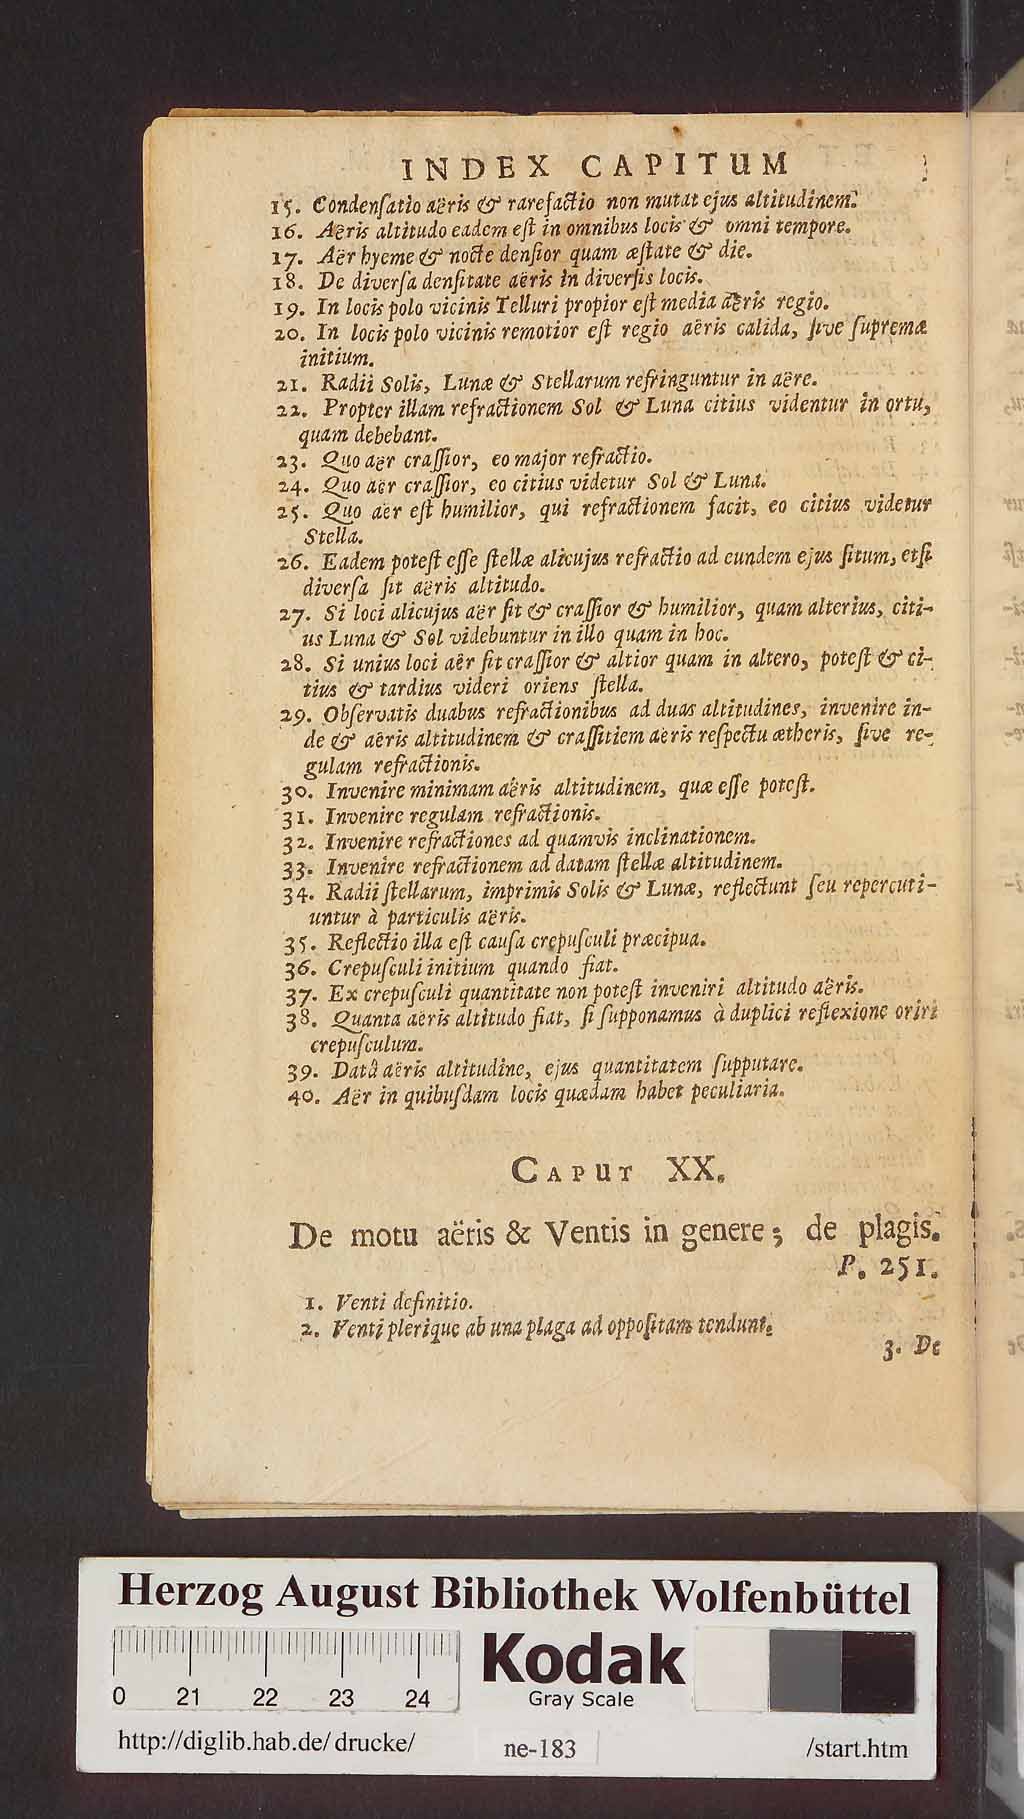 INDEX CAPITUM
15. Condenſatio aëris & rarefactio non mutat ejus altitudinem.
16. Aëris altitudo eadem eſt in omnibus locis & omni tempore.
17. Aër hyeme & nocte denſior quam æſtate & die.
18. De diverſa denſitate aëris in diverſis locis.
19. In locis polo vicinis Telluri propior eſt media aëris regio.
20. In locis polo vicinis remotior eſt regio aëris calida, ſive ſupremæ
initium.
21. Radii Solis, Lunæ & Stellarum refringuntur in aëre.
22. Propter illam refractionem Sol & Luna citius videntur in ortu,
quam debebant.
23. Quo aër craſſior, eo major refractio.
24. Quo aër craſſior, eo citius videtur Sol & Luna.
25. Quo aër eſt humilior, qui refractionem facit, eo citius videtur
Stella.
26. Eadem poteſt eſſe ſtellæ alicujus refractio ad eundem ejus ſitum, etſi
diverſa ſit aëris altitudo.
27. Si loci alicujus aër ſit & craſſior & humilior, quam alterius, citi-
us Luna & Sol videbuntur in illo quam in hoc.
28. Si unius loci aër ſit craſſior & altior quam in altero, poteſt & ci-
tius & tardius videri oriens ſtella.
29. Obſervatis duabus refractionibus ad duas altitudines, invenire in-
de & aëris altitudinem & craſſitiem aëris reſpectu ætheris, ſive re-
gulam refractionis.
30. Invenire minimam aëris altitudinem, quæ eſſe poteſt.
31. Invenire regulam refractionis.
32. Invenire refractiones ad quamvis inclinationem.
33. Invenire refractionem ad datam ſtellæ altitudinem.
34. Radii ſtellarum, imprimis Solis & Lunæ, reflectunt ſeu repercuti-
untur à particulis aëris.
35. Reflectio illa eſt cauſa crepuſculi præcipua.
36. Crepuſculi initium quando fiat.
37. Ex crepuſculi quantitate non poteſt inveniri altitudo aëris.
38. Quanta aëris altitudo fiat, ſi ſupponamus à duplici reflexione oriri
crepuſculum.
39. Datâ aëris altitudine, ejus quantitatem ſupputare.
40. Aër in quibuſdam locis quædam habet peculiaria.
CAPUT XX.
De motu aëris & Ventis in genere; de plagis.
P. 251.
1. Venti definitio.
2. Venti plerique ab una plaga ad oppoſitam tendunt.
3. De
Herzog August Bibliothek Wolfenbüttel
0 21 22 23 24
Kodak
Gray Scale
http://diglib.hab.de/drucke/ ne-183 /start.htm